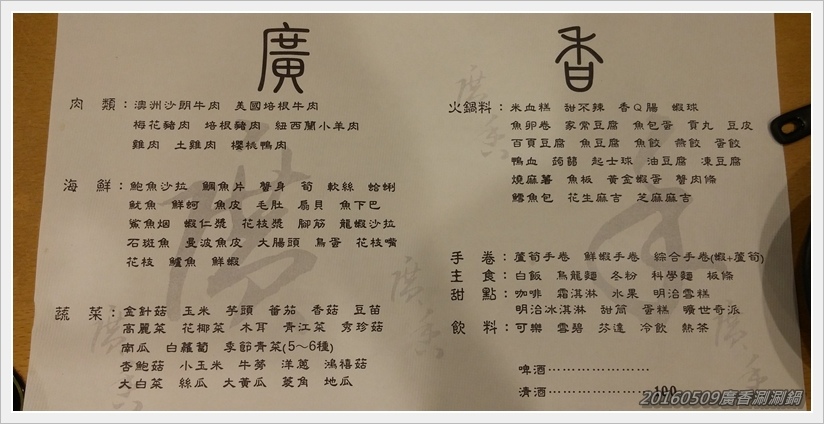 廣香
肉 類：澳洲沙朗牛肉 美國培根牛肉
梅花豬肉 培根豬肉 紐西蘭小羊肉
雞肉 土雞肉 櫻桃鴨肉
海 鮮：鮑魚沙拉 鯛魚片 蟹身 筍 軟絲 蛤蜊
魷魚 鮮蚵 魚皮 毛肚 扇貝 魚下巴
鯊魚烟 蝦仁漿 花枝漿 腳筋 龍蝦沙拉
石斑魚 曼波魚皮 大腸頭 鳥蛋 花枝嘴
花枝 鱸魚 鮮蝦
蔬 菜：金針菇 玉米 芋頭 蕃茄 香菇 豆苗
高麗菜 花椰菜 木耳 青江菜 秀珍菇
南瓜 白蘿蔔 季節青菜(5～6種)
杏鮑菇 小玉米 牛蒡 洋蔥 鴻禧菇
大白菜 絲瓜 大黃瓜 菱角 地瓜
火鍋料：米血糕 甜不辣 香Q腸 蝦球
魚卵卷 家常豆腐 魚包蛋 貢丸 豆皮
百頁豆腐 魚豆腐 魚餃 燕餃 蛋餃
鴨血 蒟蒻 起士球 油豆腐 凍豆腐
燒麻薯 魚板 黃金蝦蛋 蟹肉條
鱈魚包 花生麻吉 芝麻麻吉
手 卷：蘆筍手卷 鮮蝦手卷 綜合手卷(蝦+蘆筍)
主 食：白飯 烏龍麵 冬粉 科學麵 板條
甜 點：咖啡 霜淇淋 水果 明治雪糕
明治冰淇淋 甜筒 蛋糕 曠世奇派
飲 料：可樂 雪碧 芬達 冷飲 熱茶
啤酒⋯⋯⋯⋯⋯⋯⋯
清酒⋯⋯⋯⋯⋯⋯⋯100
20160509廣香涮涮鍋